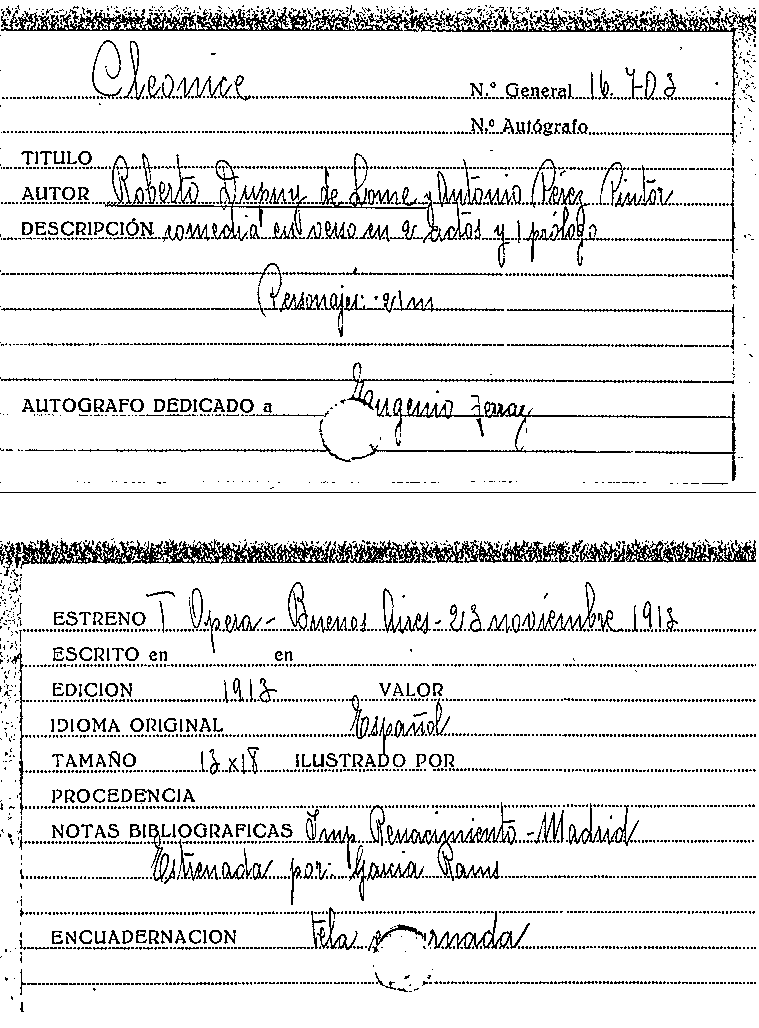 Cleonice
N.º General 16.703
N.º Autógrafo
TITULO
AUTOR Roberto Dupuy de Lome y Antonio Pérez Pintor
DESCRIPCIÓN comedia en verso en 2 actos y 1 prólogo
Personajes: 21 m
AUTOGRAFO DEDICADO a Eugenio
ESTRENO T Opera - Buenos Aires - 23 noviembre 1913
ESCRITO en en
EDICION 1913 VALOR
IDIOMA ORIGINAL Español
TAMAÑO 13x18 ILUSTRADO POR
PROCEDENCIA
NOTAS BIBLIOGRAFICAS Imp. Renacimiento - Madrid
Estrenada por: Garcia
ENCUADERNACION Tela